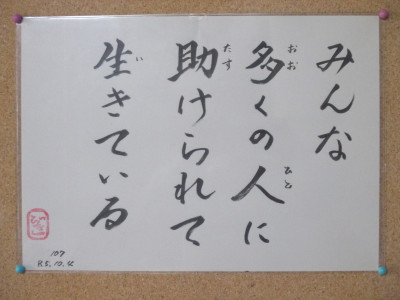 みんな
多くの人に
助けられて
生きている
おお
ひと
たす
い
107
R5.10.4